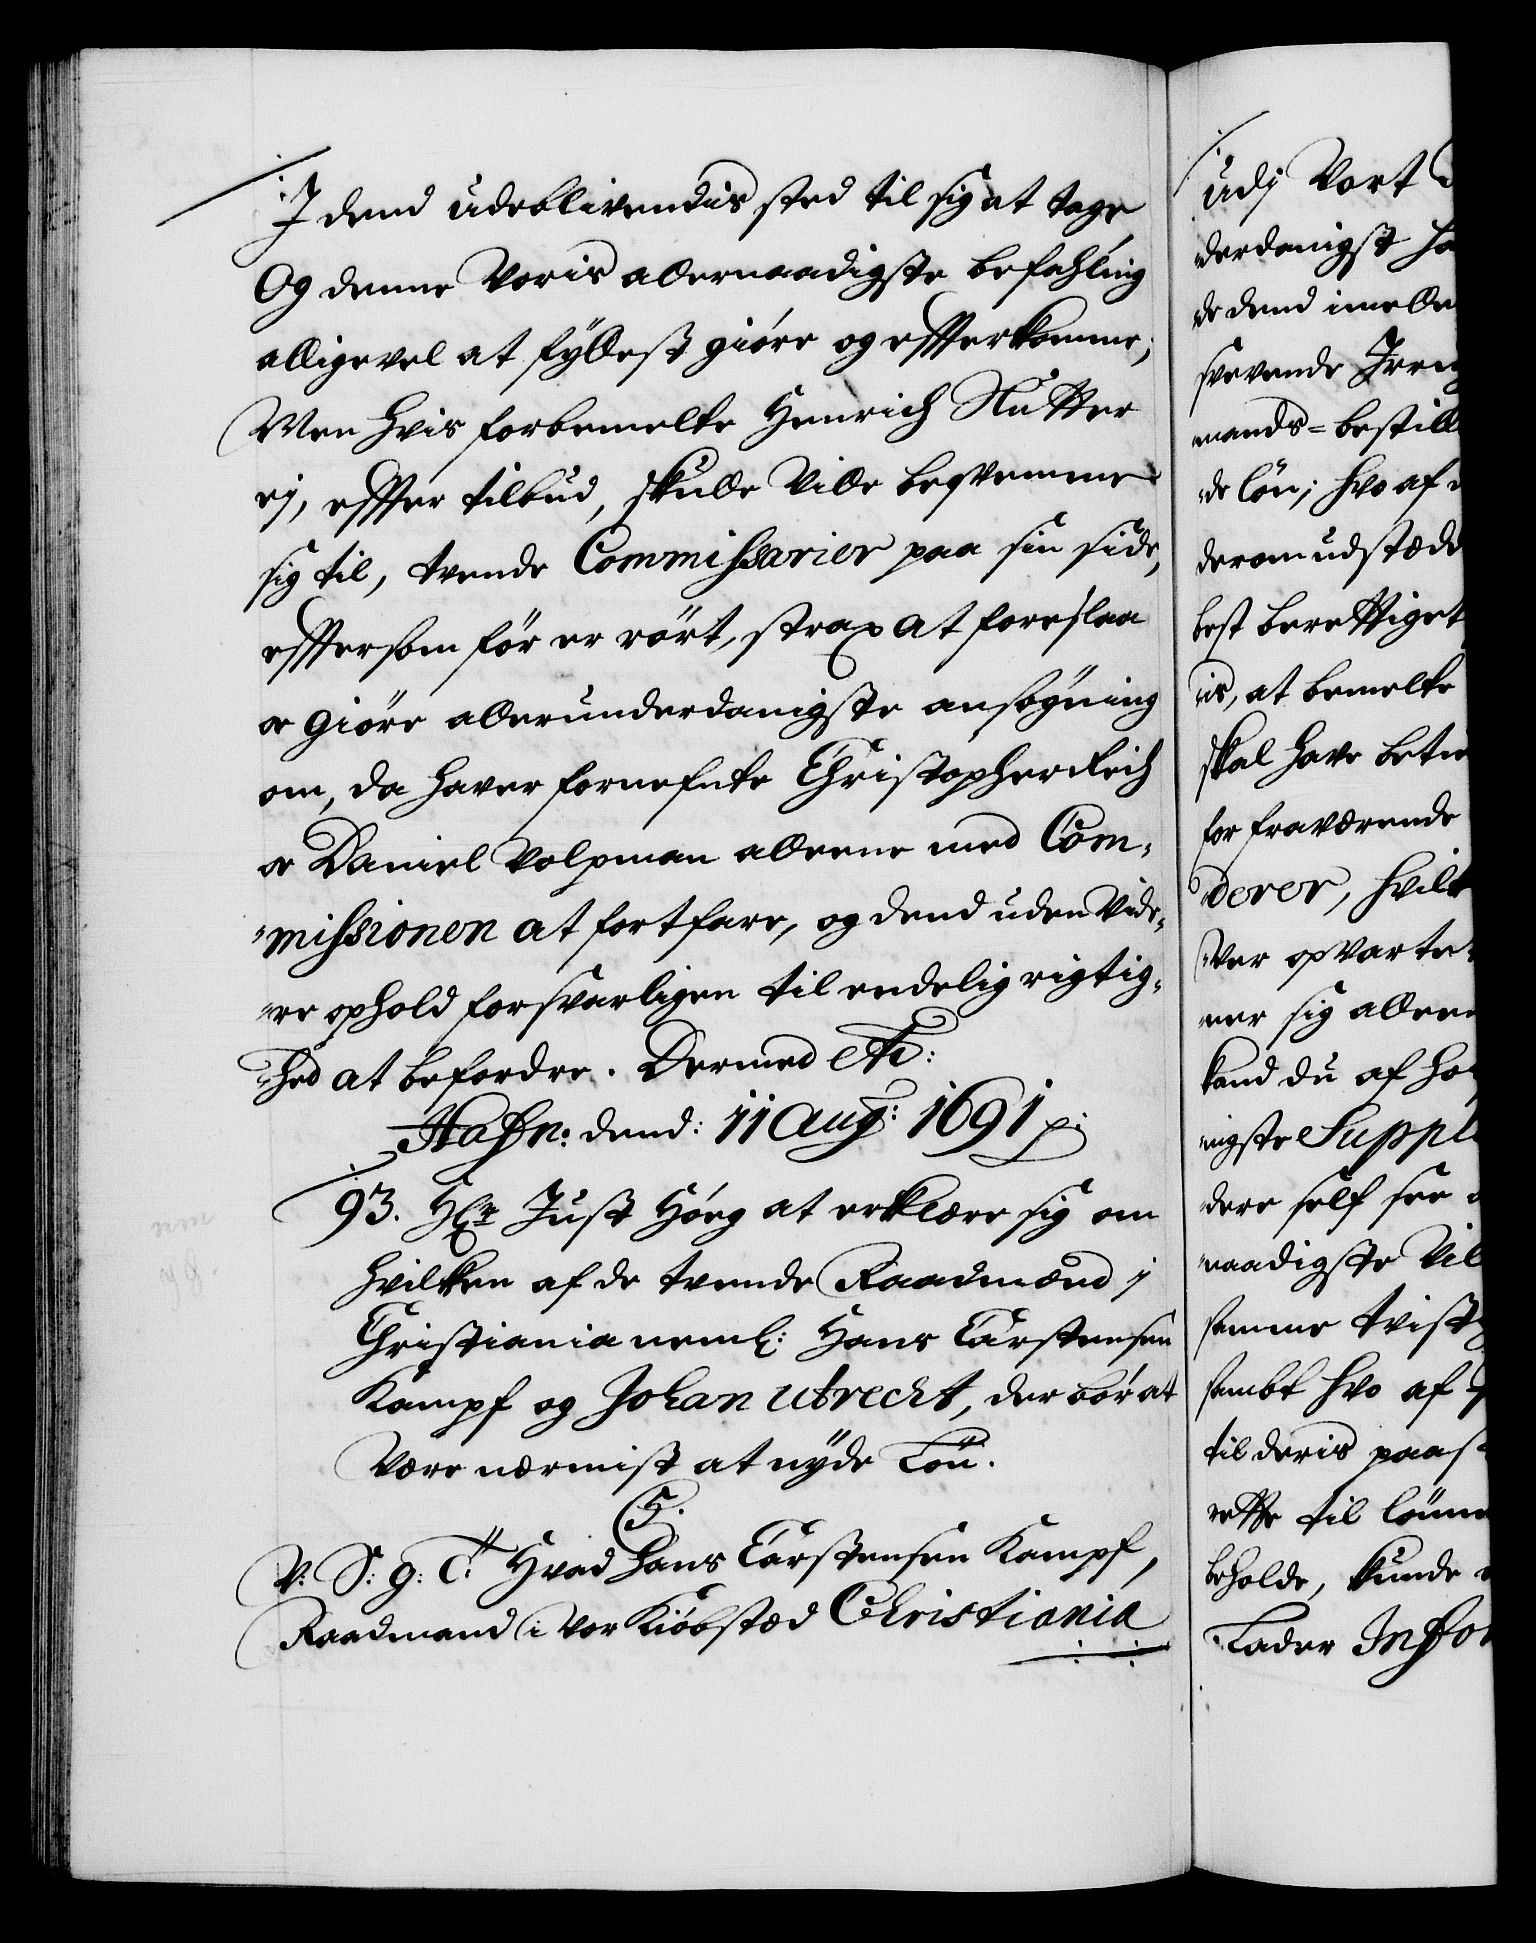 I dend udeblivendis sted til sig at tage,
Og denne Voris allernaadigste befahling
alligevel at fyllest giøre og efterkomme,
Men hvis forbemelte Henrich Nutter
ej, effter tilbud, skulle Ville beqvemme
sig til, tvende Commissarier paa sin side,
effersom før er rört, strax at foreslaa
oc giøre allerunderdanigste ansøgning
om, da haver fornefnte Christopher Eich
oc Daniel Volpman alleene med Com-
missionen at fortfare, og dend uden Vide-
re ophold forsvarligen til endelig rigtig-
hed at befordre. Dermed etc:
Hafn: dend: 11 Aug: 1691 p:
93. Hr Just Høeg at erklære sig om
hvilken af de tvende Raadmænd i
Christiania neml: Hans Carstensen
Kampf og Johan Utrecht, der bör at
Være nærmist at nyde Lön.
C5.
V. S: g: T: Hvad Hans Carstensen Kampf,
Raadmand i Vor Kiöbstæd Christiania
udj Vort
derdanigst ha
de dend imelle
svevende Irri
mands=bestill
de lön; hvo af
derom udstæde
best berettiget
is, at bemelte
skal have betie
for fraværende
derer, hvilk
Ver opvarte
ner sig allern
kand du af ho
nigste Suppl
dere self see
naadigste Vil
samme tvist
sambt hvo af
til deris paas
rette til lönn
beholde, kunde
Lader Infor